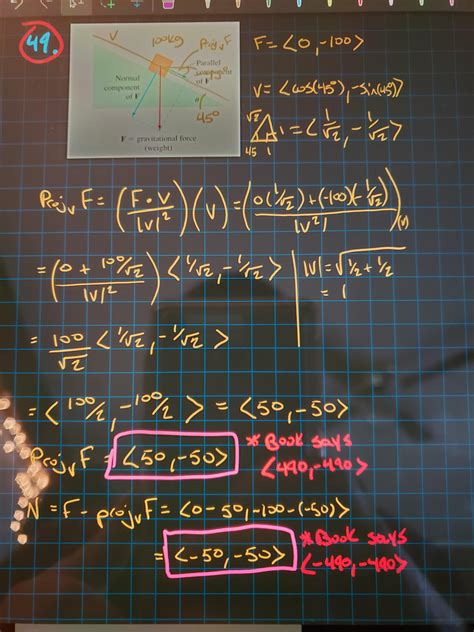 49.
V
100kg
Proj_v F
Parallel
component
of F
Normal
component
of F
45°
F = gravitational force
(weight)
F = <0, -100>
V = <cos(45°), -sin(45°)>
√2
1
45 1
= <1/√2, -1/√2>
Proj_v F = (F·V/|V|²)(V) = (0(1/√2)+(-100)(-1/√2)/|V²|)(V)
= (0 + 100/√2/|V|²) <1/√2, -1/√2>
|V| = √1/2 + 1/2
= 1
= 100/√2 <1/√2, -1/√2>
= <100/2, -100/2> = <50, -50>
Proj_v F = <50, -50>
* Book says
<490, -490>
N = F - proj_v F = <0-50, -100-(-50)>
= <-50, -50>
* Book says
<-490, -490>